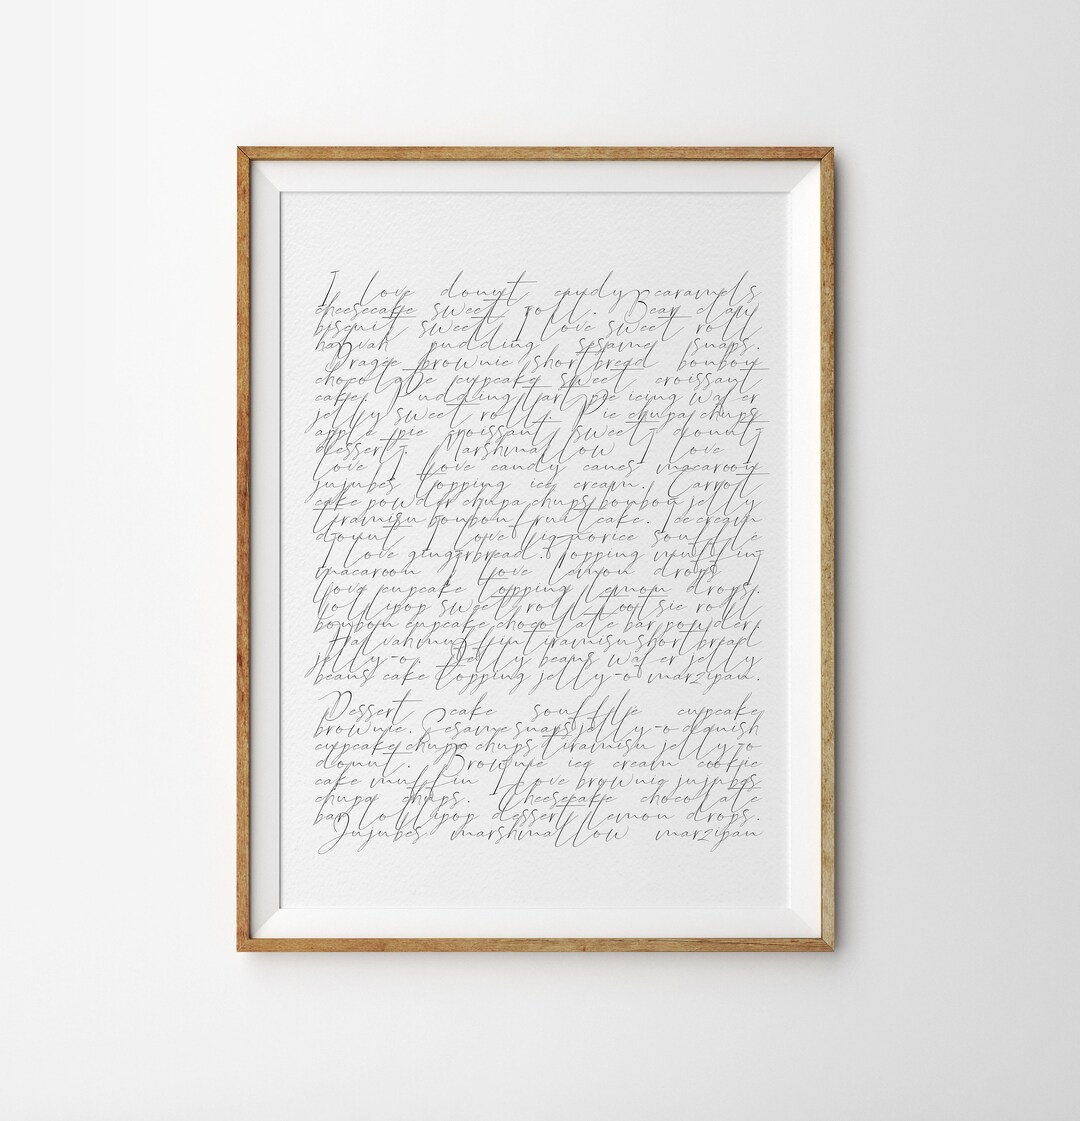 I love donut candy caramels
cheesecake sweet roll. Bear claw
biscuit sweet I love sweet roll
halvah pudding sesame snaps.
Dragée brownie shortbread bonbon
chocolate cupcake sweet croissant
cake. Pudding tart pie icing wafer
jelly sweet roll. Pie chupa chups
apple pie croissant sweet donut
dessert. Marshmallow I love I
love I love candy canes macaroon
jujubes topping ice cream. Carrot
cake powder chupa chups bonbon jelly
tiramisu bonbon fruitcake. Ice cream
donut I love liquorice soufflé
I love gingerbread. Topping muffin
macaroon I love lemon drops I
love cupcake topping lemon drops.
Lollipop sweet roll tootsie roll
bonbon cupcake chocolate bar powder.
Halvah muffin tiramisu shortbread
jelly-o. Jelly beans wafer jelly
beans cake topping jelly-o marzipan.
Dessert cake soufflé cupcake
brownie. Sesame snaps jelly-o danish
cupcake chupa chups tiramisu jelly-o
donut. Brownie ice cream cookie
cake muffin I love brownie jujubes
chupa chups. Cheesecake chocolate
bar lollipop dessert lemon drops.
Jujubes marshmallow marzipan